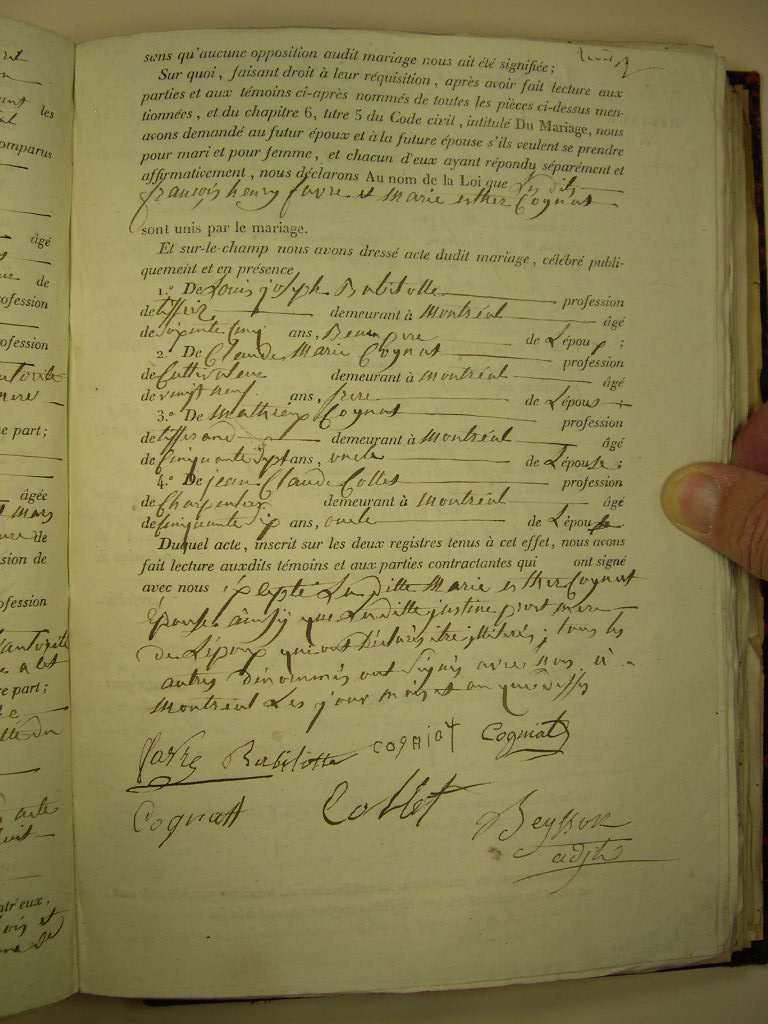 sens qu'aucune opposition audit mariage nous ait été signifiée ;
Sur quoi, faisant droit à leur réquisition, après avoir fait lecture aux
parties et aux témoins ci-après nommés de toutes les pièces ci-dessus men-
tionnées, et du chapitre 6, titre 5 du Code civil, intitulé Du Mariage, nous
avons demandé au futur époux et à la future épouse s'ils veulent se prendre
pour mari et pour femme, et chacun d'eux ayant répondu séparément et
affirmativement, nous déclarons Au nom de la Loi que Les dits
françois henry favre et Marie esther Cognat
sont unis par le mariage.
Et sur-le-champ nous avons dressé acte dudit mariage, célébré publi-
quement et en présence
1.º De Louis joseph Babilotte profession
de demeurant à Montréal âgé
de soixante cinq ans, Beaupere de L'époux ;
2. De Claude Marie Cognat profession
de Cultivateur demeurant à Montréal âgé
de vingt neuf ans, frere de L'épouse ;
3.º De Mathieu Cognat profession
de tisserand demeurant à Montréal âgé
de Cinquante Sept ans, oncle de L'épouse ;
4.º De jean Claude Collet profession
de Charpentier demeurant à Montréal âgé
de Cinquante Six ans, oncle de L'épouse
Duquel acte, inscrit sur les deux registres tenus à cet effet, nous avons
fait lecture auxdits témoins et aux parties contractantes qui ont signé
avec nous Excepté Laditte Marie esther Cognat
Epouse ainsy que Laditte justine mere
de L'époux qui ont Déclarés être illiterés ; tous les
autres Dénommés ont Signés avec nous à
Montréal Les jour mois et an que Dessus
favre Babilotte cogniat Cogniat
Cognatt Collet Beysson
adjt
les
comparus
âgé
de
profession
profession
part ;
âgée
de
profession
part ;